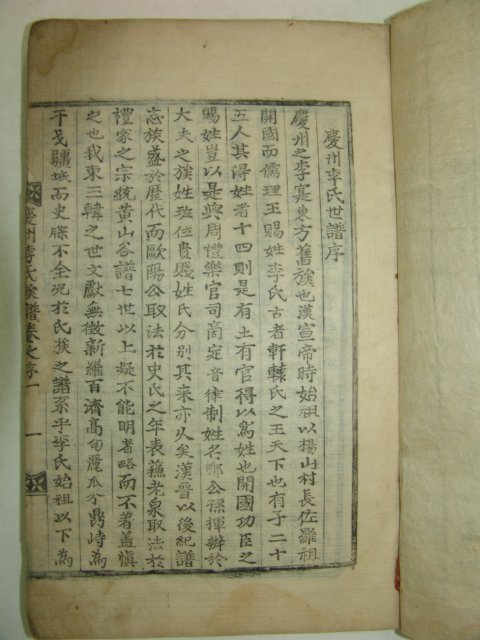 慶州李氏世譜序
慶州之李寔東方舊族也漢宣帝時始祖以楊山村長佐羅祖
開國而儒理王賜姓李氏古者軒轅氏之王天下也有子二十
五人其得姓者十四則是有土有官得以爲姓也開國功臣之
賜姓豈以是與周禮樂官司商定音律制姓名鄭公孫揮辨於
大夫之族姓班位貴賤姓氏分別其來亦久矣漢晉以後紀譜
志族盛於歷代而歐陽公取法於史氏之年表蘇老泉取法於
禮家之宗統黃山谷譜七世以上凝不能明者略而不著盖愼
之也我東三韓之世文獻無徵新羅百濟高句麗瓜分鼎峙爲
干戈疆域而史牒不全況於氏族之譜系乎李氏始祖以下爲
慶州李氏族譜卷之序一
一